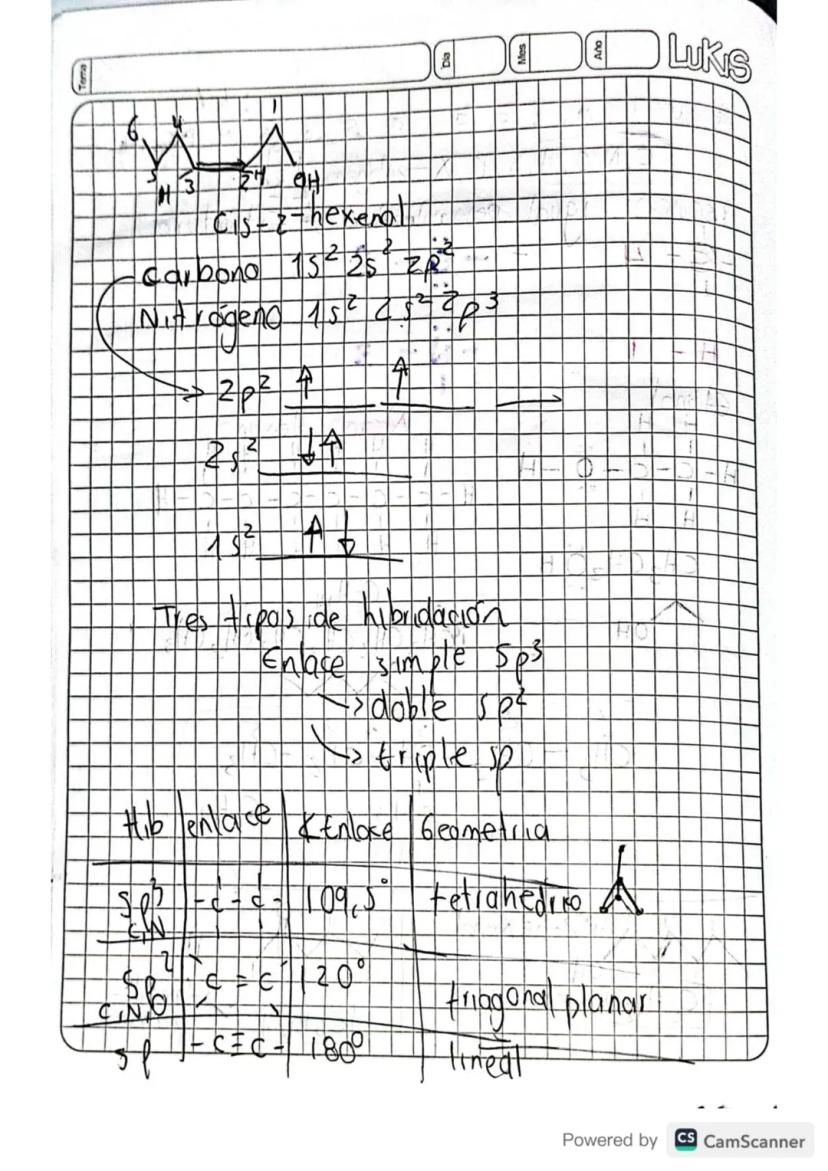 Tema
Dia
Mes
Año
LUKIS
6 4 1
5 H 3 2 H OH
Cis-2-hexenal
Carbono 1s² 2s² 2p²
Nitrógeno 1s² 2s² 2p³
2p² ↑ ↑
2s² ↓↑
1s² ↑↓
Tres tipos de hibridación
Enlace simple Sp³
→ doble sp²
→ triple sp
Hib enlace ∢Enlace Geometria
Sp³ -C-C- 109,5° tetrahedro
C,N
Sp² C=C 120° triagonal planar
C,N,O
sp -C≡C- 180° lineal
Powered by CS CamScanner